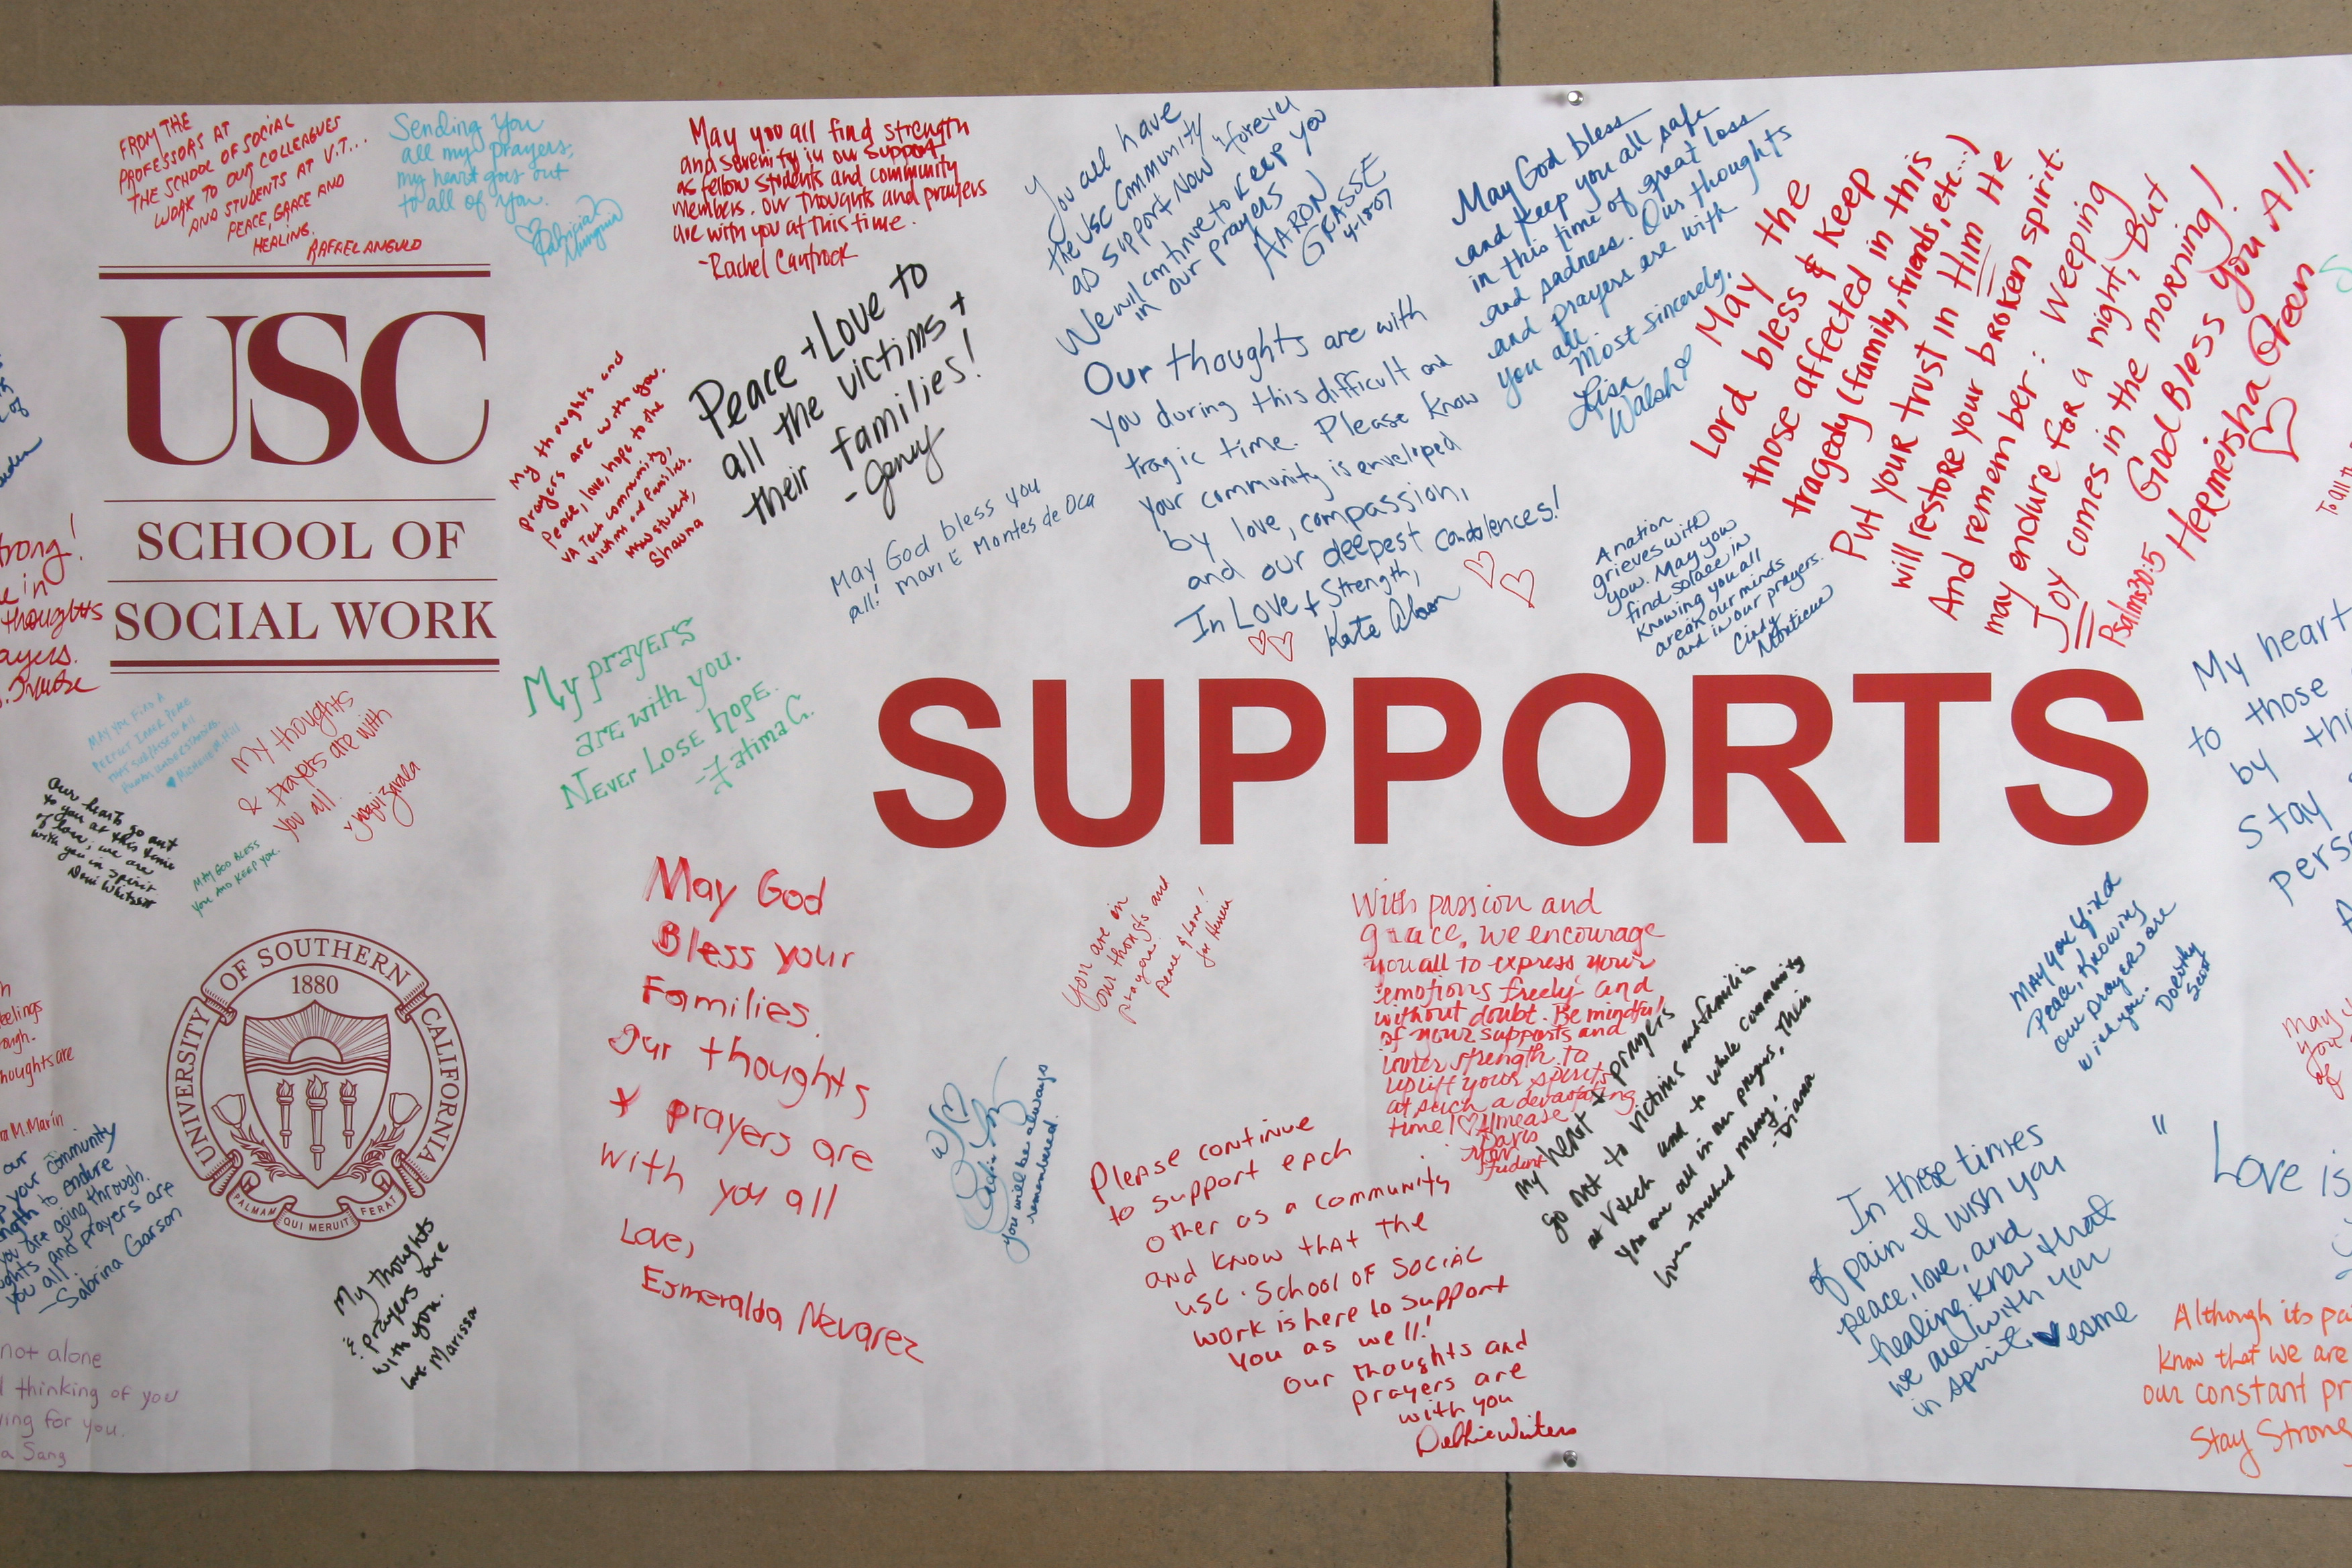 FROM THE
PROFESSORS AT
THE SCHOOL OF SOCIAL
WORK TO OUR COLLEAGUES
AND STUDENTS AT V.T...
PEACE, GRACE AND
HEALING.
RAFAEL ANGULO
Sending you
all my prayers;
my heart goes out
to all of you.
May you all find strength
and serenity in our support
as fellow students and community
members. Our thoughts and prayers
are with you at this time.
-Rachel Cantrock
You all have
the USC Community
as support Now "forever
We will continue to keep you
in our prayers
AARON
GRASSE
4-18-07
May God bless
and keep you all safe
in this time of great loss
and sadness. Our thoughts
and prayers are with
you all.
Most sincerely,
Lisa
Walsh
May the
Lord bless & keep
those affected in this
tragedy (family, friends, etc...)
Put your trust in Him He
will restore your broken spirit.
And remember: Weeping
may endure for a night, But
Joy comes in the morning!
Psalms 30:5
God Bless you All.
Hermeisha Green
USC
SCHOOL OF
SOCIAL WORK
My thoughts and
prayers are with you.
Peace, love, hope to the
VA Tech community,
victims and families.
MSW student,
Shauna
Peace + Love to
all the victims +
their families!
- Jenny
May God bless you
all! Mari E Montes de Oca
Our thoughts are with
you during this difficult and
tragic time. Please know
your community is enveloped
by love, compassion,
and our deepest condolences!
In Love + Strength,
Kate
A nation
grieves with
you. May you
find solace in
knowing you all
are in our minds
and in our prayers.
Cindy
trong!
e in
thoughts
ayers.
My prayers
are with you.
Never Lose hope.
-Fatima C.
SUPPORTS
My heart
to those
by thi
Stay
pers
MAY YOU FIND A
PERFECT INNER PEACE
THAT SURPASSES ALL
HUMAN UNDERSTANDING.
Michelle M. Hill
My thoughts
& prayers are with
you all.
Our hearts go out
to you at this time
of loss; we are
with you in spirit.
MAY GOD BLESS
YOU AND KEEP YOU.
UNIVERSITY OF SOUTHERN CALIFORNIA
1880
PALMAM QUI MERUIT FERAT
May God
Bless your
Families.
Our thoughts
+ prayers are
with you all
Love,
Esmeralda Nevarez
You are in
our thoughts and
prayers.
Peace & Love!
you will be always
remembered.
With passion and
grace, we encourage
you all to express your
emotions freely and
without doubt. Be mindful
of your supports and
inner strength to
uplift your spirits
at such a devastating
time!
Davis
student
My heart + prayers
go out to victims and families
at V tech and to whole community
You are all in our prayers, Their
lives touched many,
- Diana
May you find
Peace, Knowing
our prayers are
with you..
Dorothy
Scott
Please continue
to support each
other as a community
and know that the
USC School of Social
work is here to support
you as well!
Our thoughts and
prayers are
with you
Debbie Winters
In these times
of pain I wish you
peace, love, and
healing. Know that
we are with you
in spirit. esme
" Love is
Although its pa
know that we are
our constant pr
Stay Strong
eelings
ough.
houghts are
ra M. Marin
our
p your community
ngth to endure
you are going through.
ghts and prayers are
you all.
-Sabrina Garson
My thoughts
& prayers are
with you.
love Marissa
not alone
thinking of you
ying for you.
a Sang